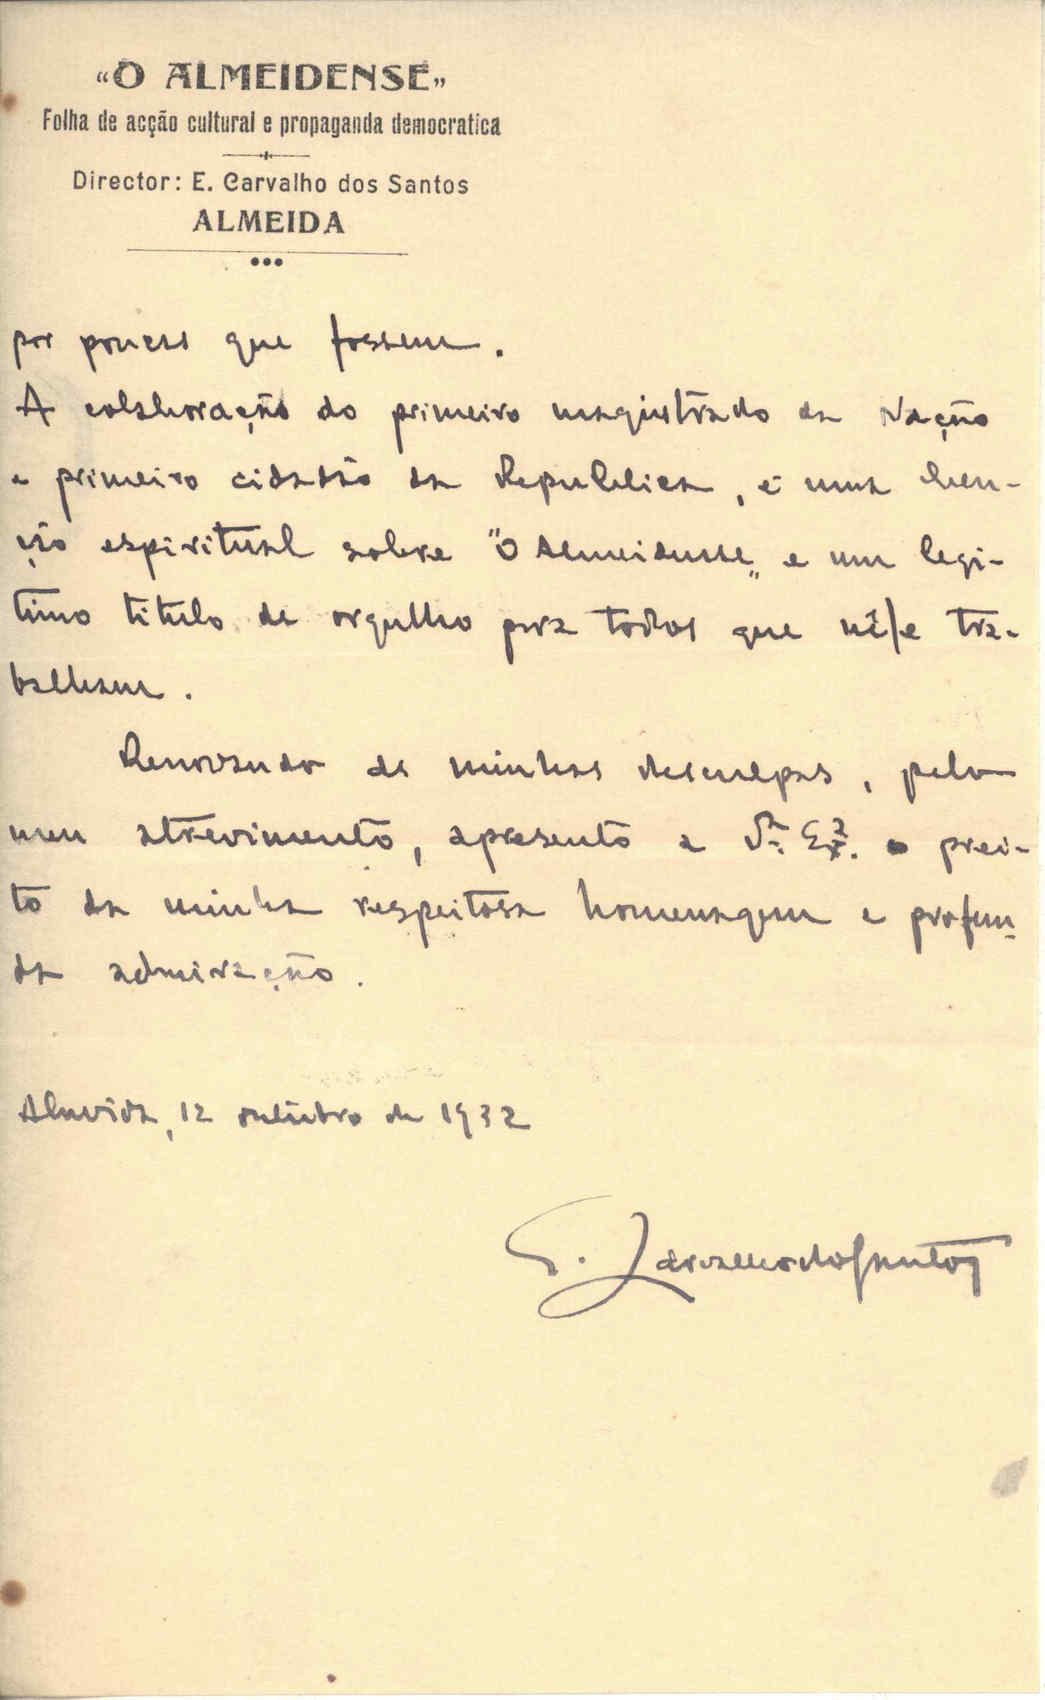 «O ALMEIDENSE»
Folha de acção cultural e propaganda democratica
Director: E. Carvalho dos Santos
ALMEIDA
por poucas que fossem.
A colaboração do primeiro magistrado da Nação
e primeiro cidadão da Republica, é uma ben-
ção espiritual sobre "O Almeidense„ e um legi-
timo titulo de orgulho para todos que nêle tra-
balham.
Renovando as minhas desculpas, pelo
meu atrevimento, apresento a S.ª Ex.ª o prei-
to da minha respeitosa homenagem e profun-
da admiração.
Almeida, 12 outubro de 1932
E. Carvalho dos Santos